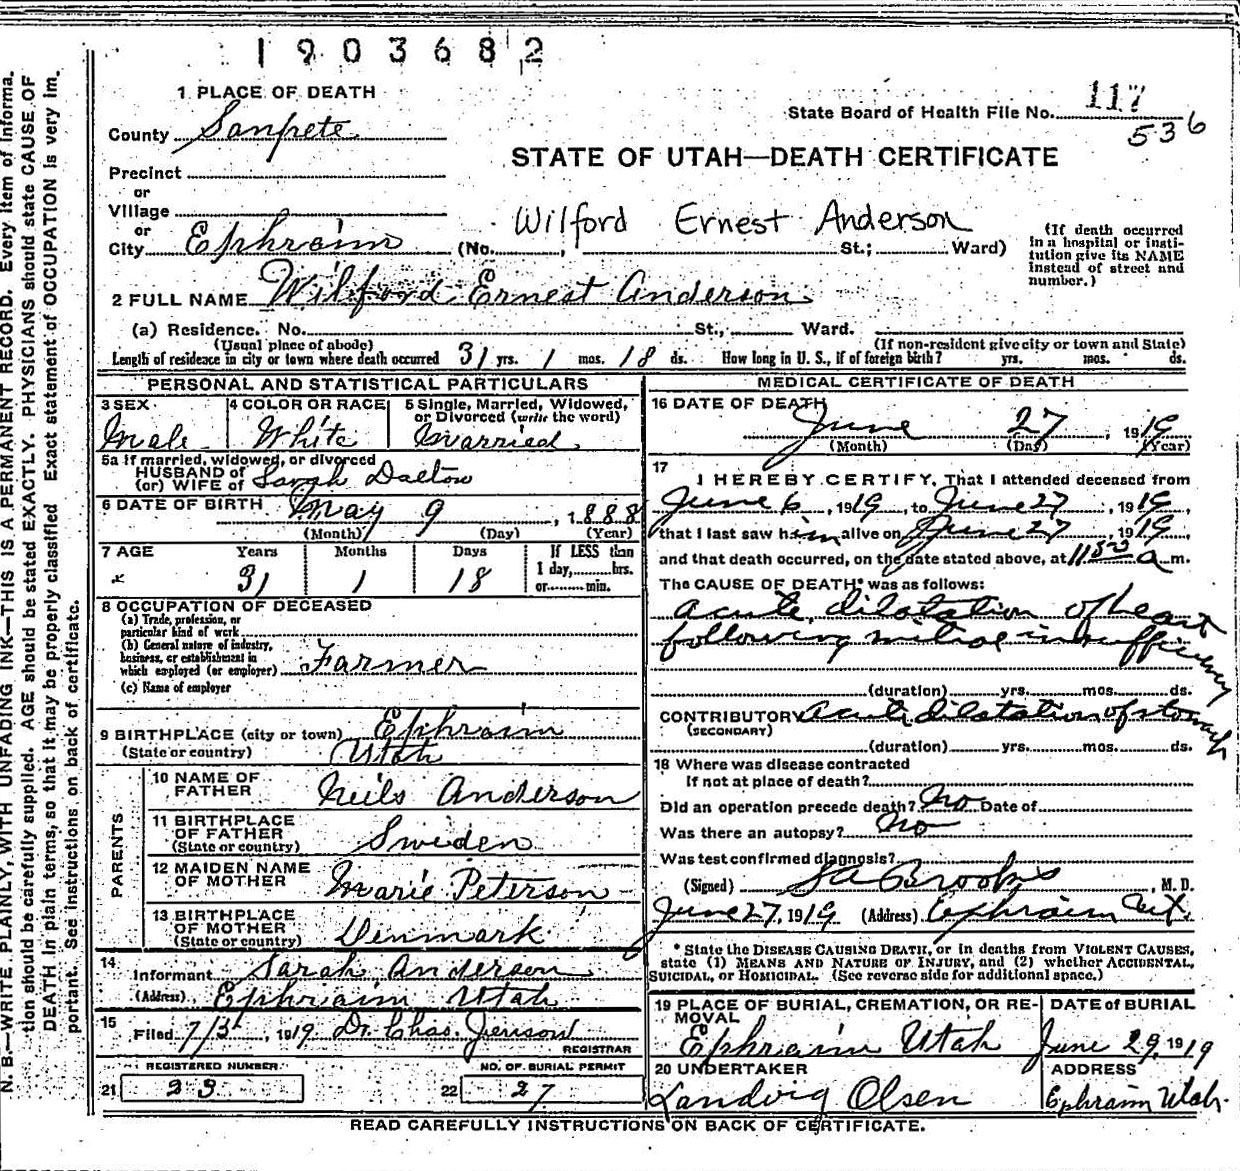 1903682
1 PLACE OF DEATH
County Sanpete
State Board of Health File No. 117
536
STATE OF UTAH—DEATH CERTIFICATE
Precinct
or
Village
or
Wilford Ernest Anderson
City Ephraim (No. , St.; Ward)
(If death occurred in a hospital or insti-
tution give its NAME
instead of street and
number.)
2 FULL NAME Wilford Ernest Anderson
(a) Residence. No. St., Ward.
(Usual place of abode) (If non-resident give city or town and State)
Length of residence in city or town where death occurred 31 yrs. 1 mos. 18 ds. How long in U. S., if of foreign birth? yrs. mos. ds.
PERSONAL AND STATISTICAL PARTICULARS
3 SEX
Male
4 COLOR OR RACE
White
5 Single, Married, Widowed,
or Divorced (write the word)
Married
5a If married, widowed, or divorced
HUSBAND of
(or) WIFE of Sarah Dalton
6 DATE OF BIRTH May 9, 1888
(Month) (Day) (Year)
7 AGE Years Months Days If LESS than
31 1 18 1 day, hrs.
or min.
8 OCCUPATION OF DECEASED
(a) Trade, profession, or
particular kind of work
(b) General nature of industry,
business, or establishment in
which employed (or employer) Farmer
(c) Name of employer
9 BIRTHPLACE (city or town) Ephraim
(State or country) Utah
PARENTS
10 NAME OF
FATHER Neils Anderson
11 BIRTHPLACE
OF FATHER
(State or country) Sweden
12 MAIDEN NAME
OF MOTHER Marie Peterson
13 BIRTHPLACE
OF MOTHER
(State or country) Denmark
14
Informant Sarah Anderson
(Address) Ephraim Utah
15
Filed 7/3, 1919 Dr. Chas. Jenson
REGISTRAR
REGISTERED NUMBER NO. OF BURIAL PERMIT
21 23 22 27
MEDICAL CERTIFICATE OF DEATH
16 DATE OF DEATH
June 27, 1919
(Month) (Day) (Year)
17
I HEREBY CERTIFY, That I attended deceased from
June 6, 1919, to June 27, 1919,
that I last saw him alive on June 27, 1919,
and that death occurred, on the date stated above, at 11 a m.
The CAUSE OF DEATH* was as follows:
Acute dilatation of heart
following mitral insufficiency
(duration) yrs. mos. ds.
CONTRIBUTORY Acute dilatation of stomach
(SECONDARY)
(duration) yrs. mos. ds.
18 Where was disease contracted
If not at place of death?
Did an operation precede death? No Date of
Was there an autopsy? No
Was test confirmed diagnosis?
(Signed) Brooks, M. D.
June 27, 1919 (Address) Ephraim Ut.
* State the DISEASE CAUSING DEATH, or in deaths from VIOLENT CAUSES,
state (1) MEANS AND NATURE OF INJURY, and (2) whether ACCIDENTAL,
SUICIDAL, or HOMICIDAL. (See reverse side for additional space.)
19 PLACE OF BURIAL, CREMATION, OR RE-
MOVAL
Ephraim Utah
DATE of BURIAL
June 29, 1919
20 UNDERTAKER
Landvig Olsen
ADDRESS
Ephraim Utah.
READ CAREFULLY INSTRUCTIONS ON BACK OF CERTIFICATE.
N. B.—WRITE PLAINLY, WITH UNFADING INK—THIS IS A PERMANENT RECORD. Every item of informa-
tion should be carefully supplied. AGE should be stated EXACTLY. PHYSICIANS should state CAUSE OF
DEATH in plain terms, so that it may be properly classified. Exact statement of OCCUPATION is very im-
portant. See instructions on back of certificate.